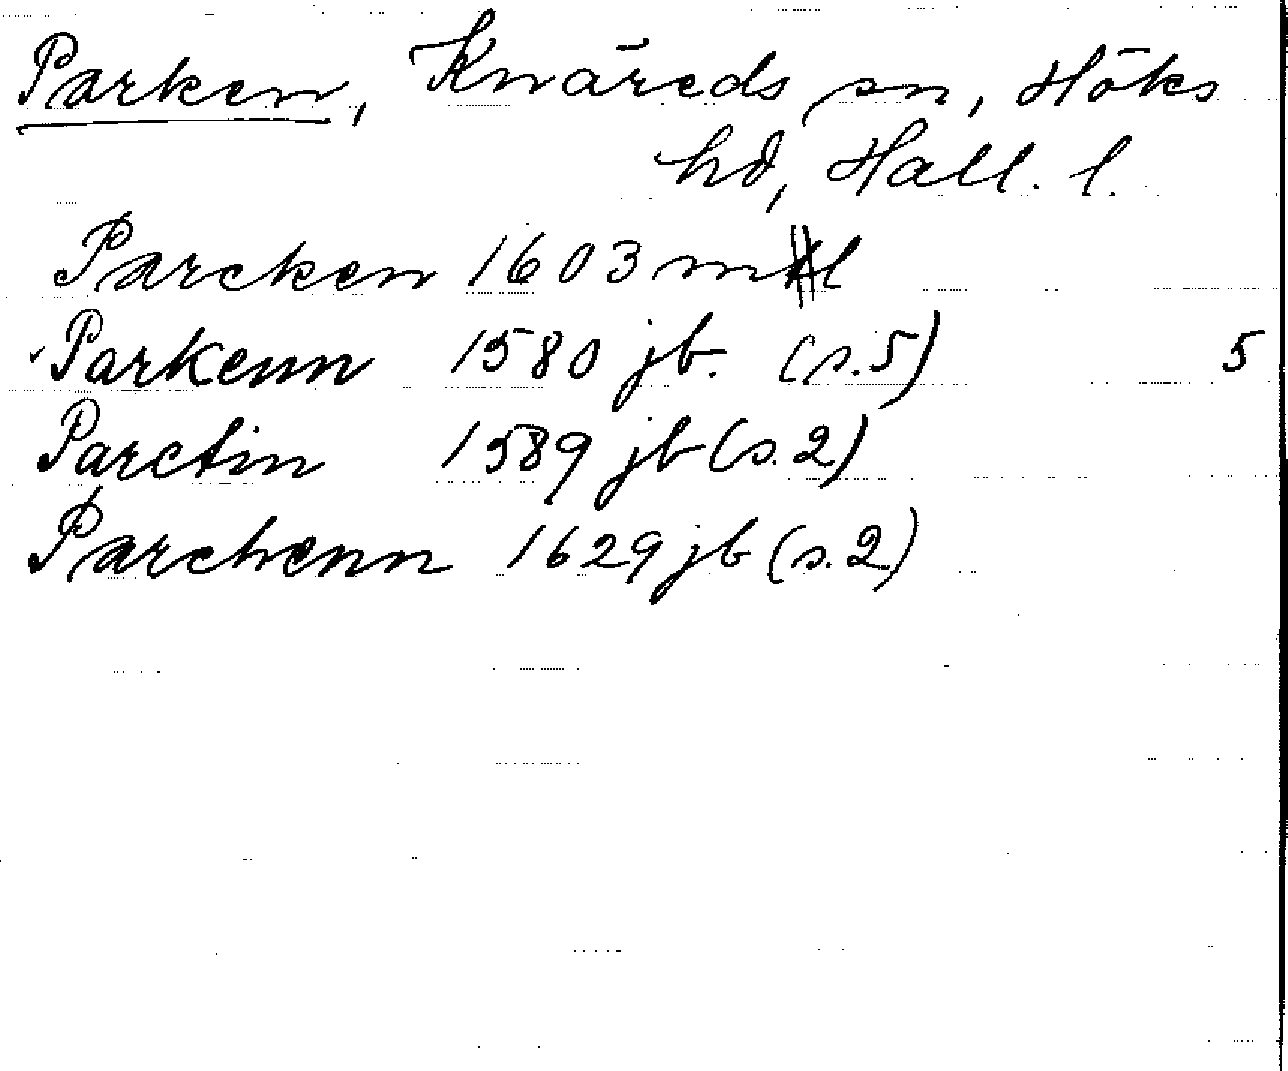 Parken, Knäreds sn, Höks
hd, Hall. l.
Parcken 1603 mtl
Parkenn 1580 jb. (s.5) 5
Parctin 1589 jb (s.2)
Parchenn 1629 jb (s.2)